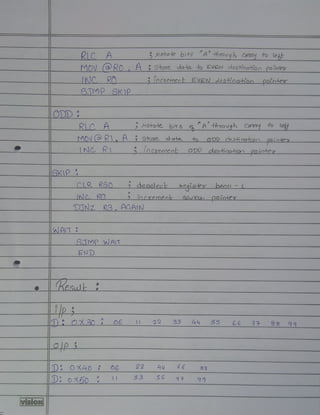 RLC A ; Rotate bits "A" through carry to left
MOV @R0, A ; Store data to EVEN destination pointer
INC R0 ; increment EVEN destination pointer
SJMP SKIP
ODD :
RLC A ; Rotate bits of "A" through carry to left
MOV @R1, A ; Store data to ODD destination pointer
INC R1 ; increment ODD destination pointer
SKIP :
CLR RS0 ; deselect register bank - 1
INC R0 ; Increment source pointer
DJNZ R3, AGAIN
WAIT :
SJMP WAIT
END
Result :
I/P ;
D: 0X30 : 06 11 22 33 44 55 66 77 88 99
O/P ;
D: 0X40 : 06 22 44 66 88
D: 0X50 : 11 33 55 77 99
vision